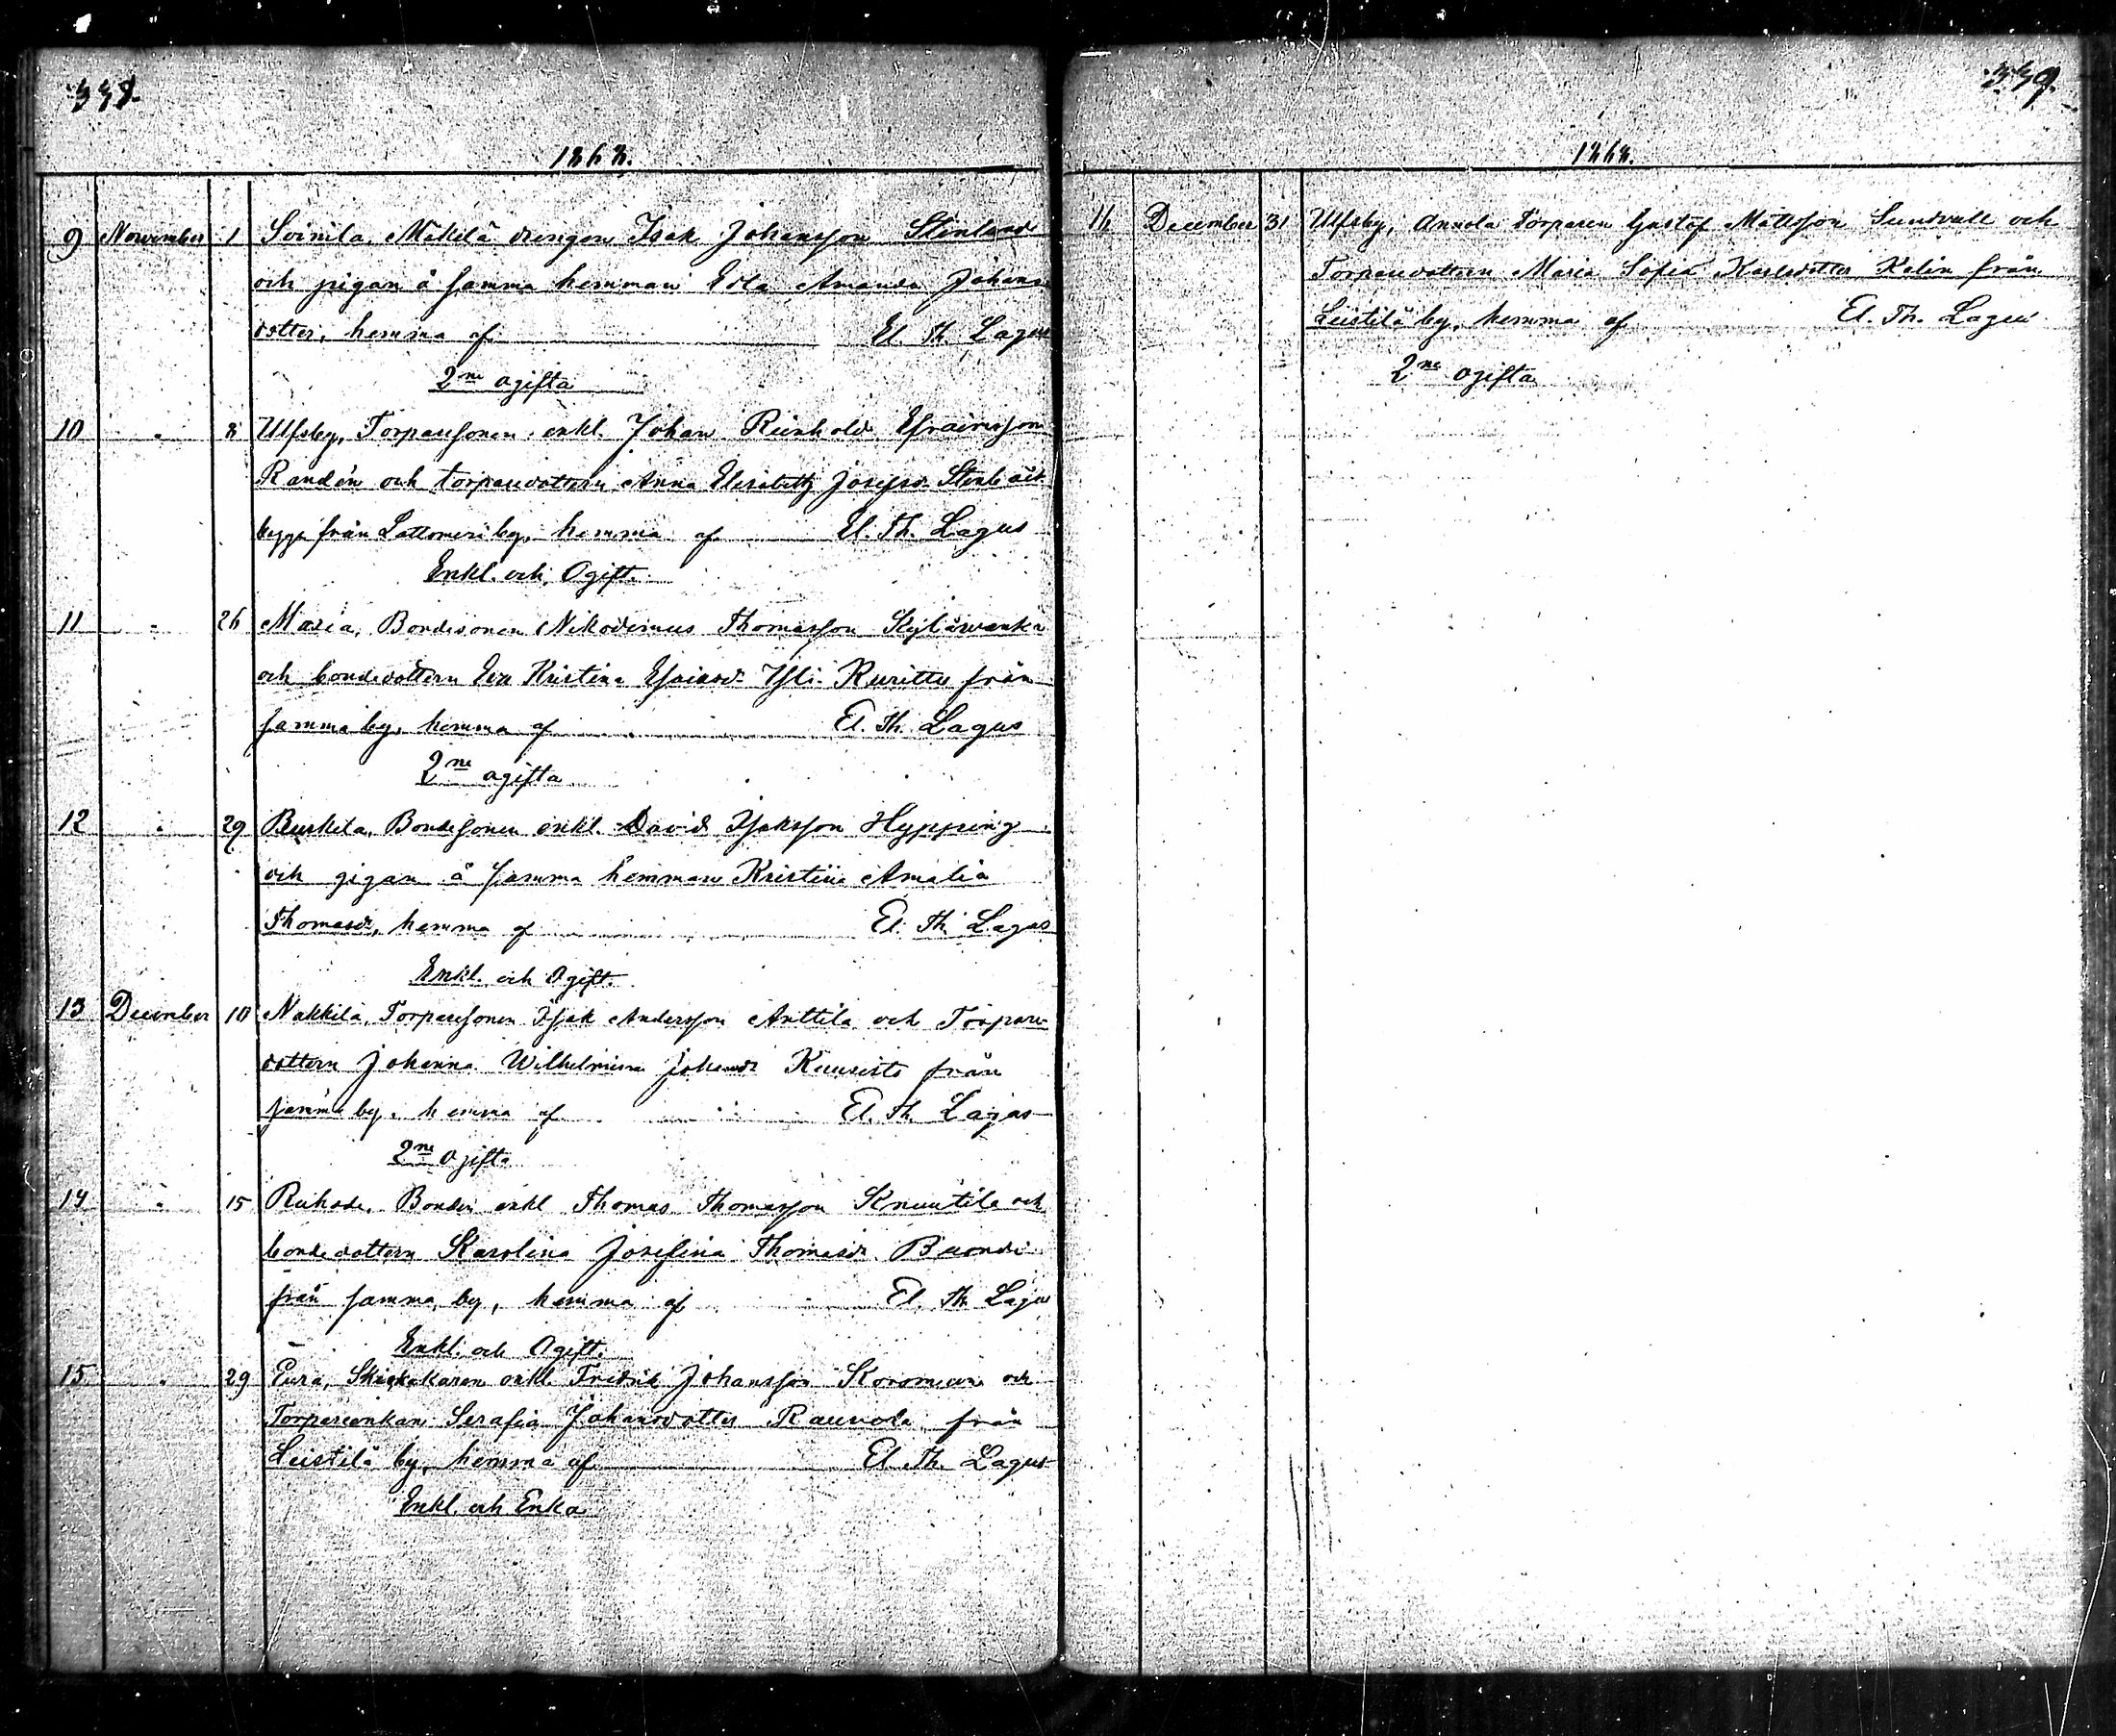 338.
1868.
9 November 1 Soinila, Mäkilä drengen Isak Johansson Stenlund
och pigan å samma hemman Eva Amanda Johans
dotter, hemma af El. Th. Lagus
2ne ogifta
10 " 8 Ulfsby, Torparesonen enkl. Johan Reinhold Efraimsson
Randén och torparedottern Anna Elisabeth Josefsd.
bygge från Lattomeri by, hemma af El. Th. Lagus
Enkl. och Ogift.
11 " 26 Masia, Bondesonen Nikodemus Thomasson
och bondedottern Eva Kristina Esaiasd. Yli-Kurittu från
samma by, hemma af El. Th. Lagus
2ne ogifta
12 " 29 Bondesonen enkl. David Isaksson Hypping
och pigan å samma hemman Kristina Amalia
Thomasd., hemma af El. Th. Lagus
Enkl. och Ogift.
13 December 10 Nakkila, Torparesonen Isak Andersson Anttila och Torpare-
dottern Johanna Wilhelmina Johansd. Kuusisto från
samma by, hemma af El. Th. Lagus
2ne ogifta
14 " 15 Ruhade, Bonden enkl Thomas Thomasson Knuutila och
bondedottern Karolina Josefina Thomasd.
från samma by, hemma af El. Th. Lagus
Enkl. och Ogift.
15 " 29 Eura, enkl. Fredrik Johansson och
Torpareenkan Serafia Johansdotter Raunola från
Leistilä by, hemma af El. Th. Lagus
Enkl. och Enka
339.
1868.
16 December 31 Ulfsby, Annola Torparen Gustaf Mattsson Sundvall och
Torparedottern Maria Sofia Karlsdotter Kalin från
Leistilä by, hemma af El. Th. Lagus
2ne ogifta